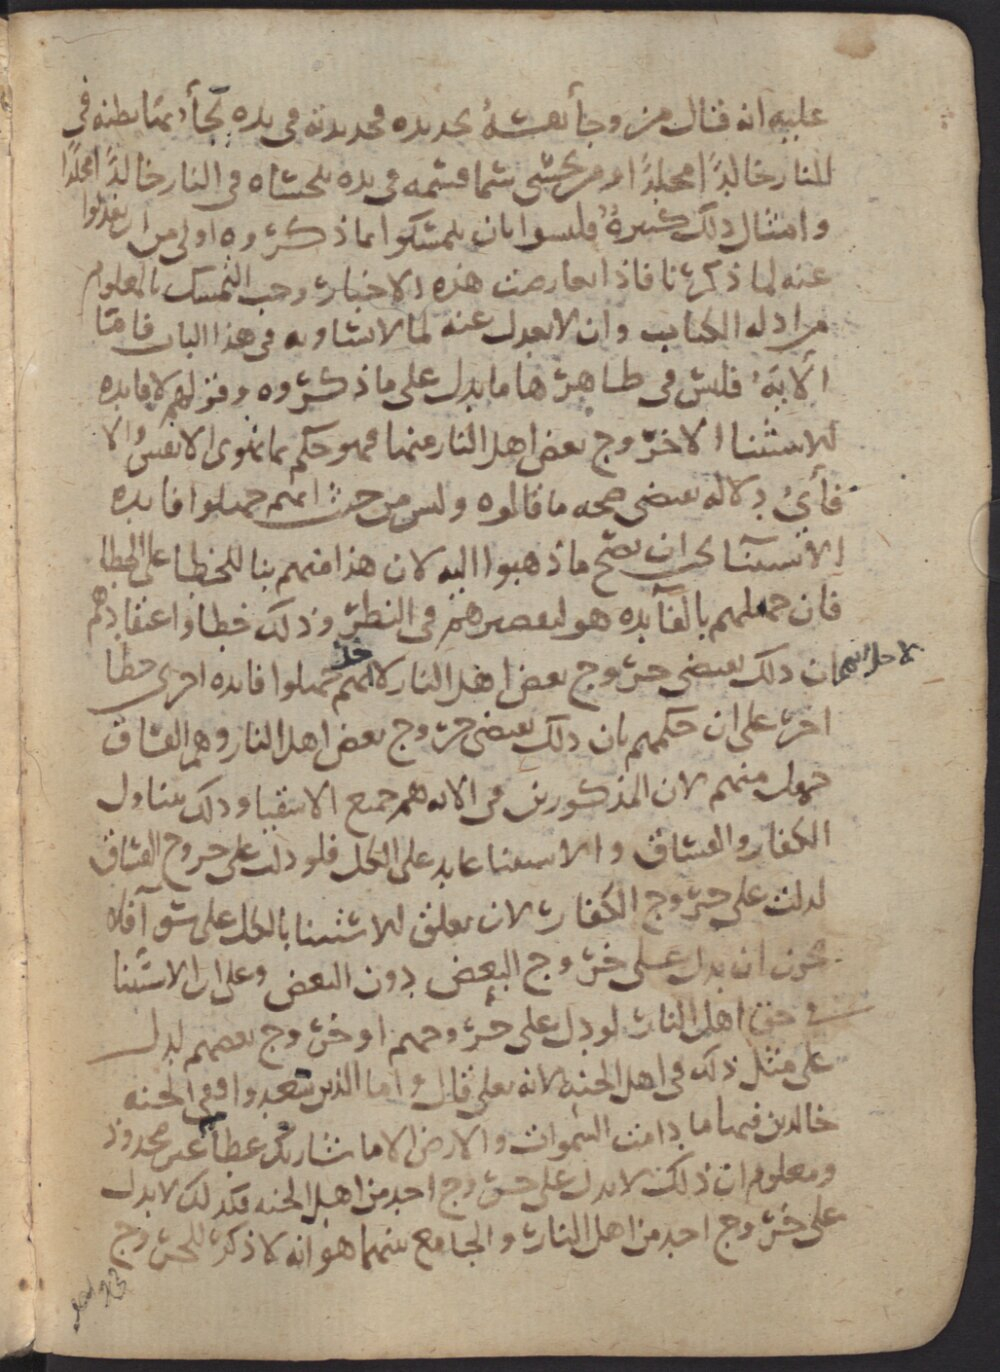 عليه انه قال من وجأ نفسه بحديده فحديدته في يده يجأ بها بطنه في
النار خالدًا مخلدًا او من تحسى سما فسمه في يده يتحساه في النار خالدًا مخلدًا
وامثال ذلك كثيرة فليسوا بان يتمسكوا بما ذكروه اولى من ان يعدلوا
عنه لما ذكرنا فاذا تعارضت هذه الاخبار وجب التمسك بالمعلوم
من ادله الكتاب وان لا يعدل عنه لما لا يساويه في هذا الباب فاما
الآية فليس في ظاهرها ما يدل على ما ذكروه وقولهم لا فايده
للاستثنا الا خروج بعض اهل النار عنها فهو حكم بما تهوى الانفس والا
فأي دلاله تقتضي صحه ما قالوه وليس من حيث انهم جهلوا فايده
الاستثنا يجب ان يصح ما ذهبوا اليه لان هذا منهم بنا للخطا على الخطا
فان جهلهم بالفايده هو لتقصيرهم في النظر وذلك خطا واعتقادهم
ان ذلك يقتضي خروج بعض اهل النار لانهم جهلوا فايده اخرى خطا
لاجل انهم
اخر على ان حكمهم بان ذلك يقتضي خروج بعض اهل النار وهم الفساق
جهل منهم لان المذكورين في الايه هم جميع الاشقيا وذلك يتناول
الكفار والفساق والاستثنا عايد على الكل فلو دلت على خروج الفساق
لدلت على خروج الكفار لان تعلق الاستثنا بالكل على سوآ فلا
يجوز ان يدل على خروج البعض دون البعض وعلى ان الاستثنا
في حق اهل النار لو دل على خروجهم او خروج بعضهم لدل
على مثل ذلك في اهل الجنه لانه تعلى قال واما الذين سعدوا ففي الجنه
خالدين فيها ما دامت السموات والارض الا ما شا ربك عطآ غير مجذوذ
ومعلوم ان ذلك لا يدل على خروج احد من اهل الجنه فكذلك لا يدل
على خروج احد من اهل النار والجامع بينهما هو انه لا ذكر للخروج